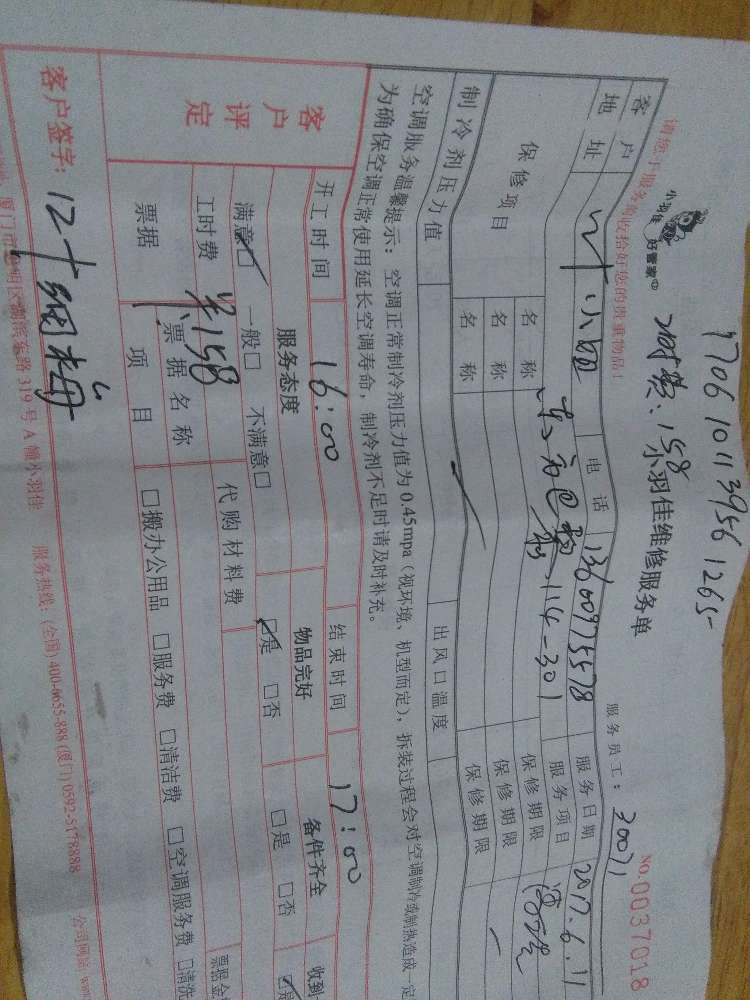 1706101139561265
请您于服务前收拾好您的贵重物品！
小羽佳 好管家
费：158
小羽佳维修服务单
NO.0037018
服务员工：30071
客户 小姐 电话 13600975578 服务日期 2017.6.11
地址 114-301 服务项目
保修项目 名称 保修期限
名称 保修期限
名称 保修期限
制冷剂压力值 出风口温度
空调服务温馨提示：空调正常制冷剂压力值为0.45mpa（视环境、机型而定），拆装过程会对空调制冷或制热造成一定
为确保空调正常使用延长空调寿命，制冷剂不足时请及时补充。
客户评定 开工时间 16:00 结束时间 17:00
服务态度 物品完好 备件齐全 收到
满意☑ 一般□ 不满意□ ☑是 □否 □是 □否
工时费 ¥158 代购材料费
票据 票据名称 票据金
项目 □搬办公用品 □服务费 □清洁费 □空调服务费 □清洗
客户签字：
319号A幢小羽佳 服务热线：(全国) 400-6655-888 (厦门) 0592-5178888 公司网址:www